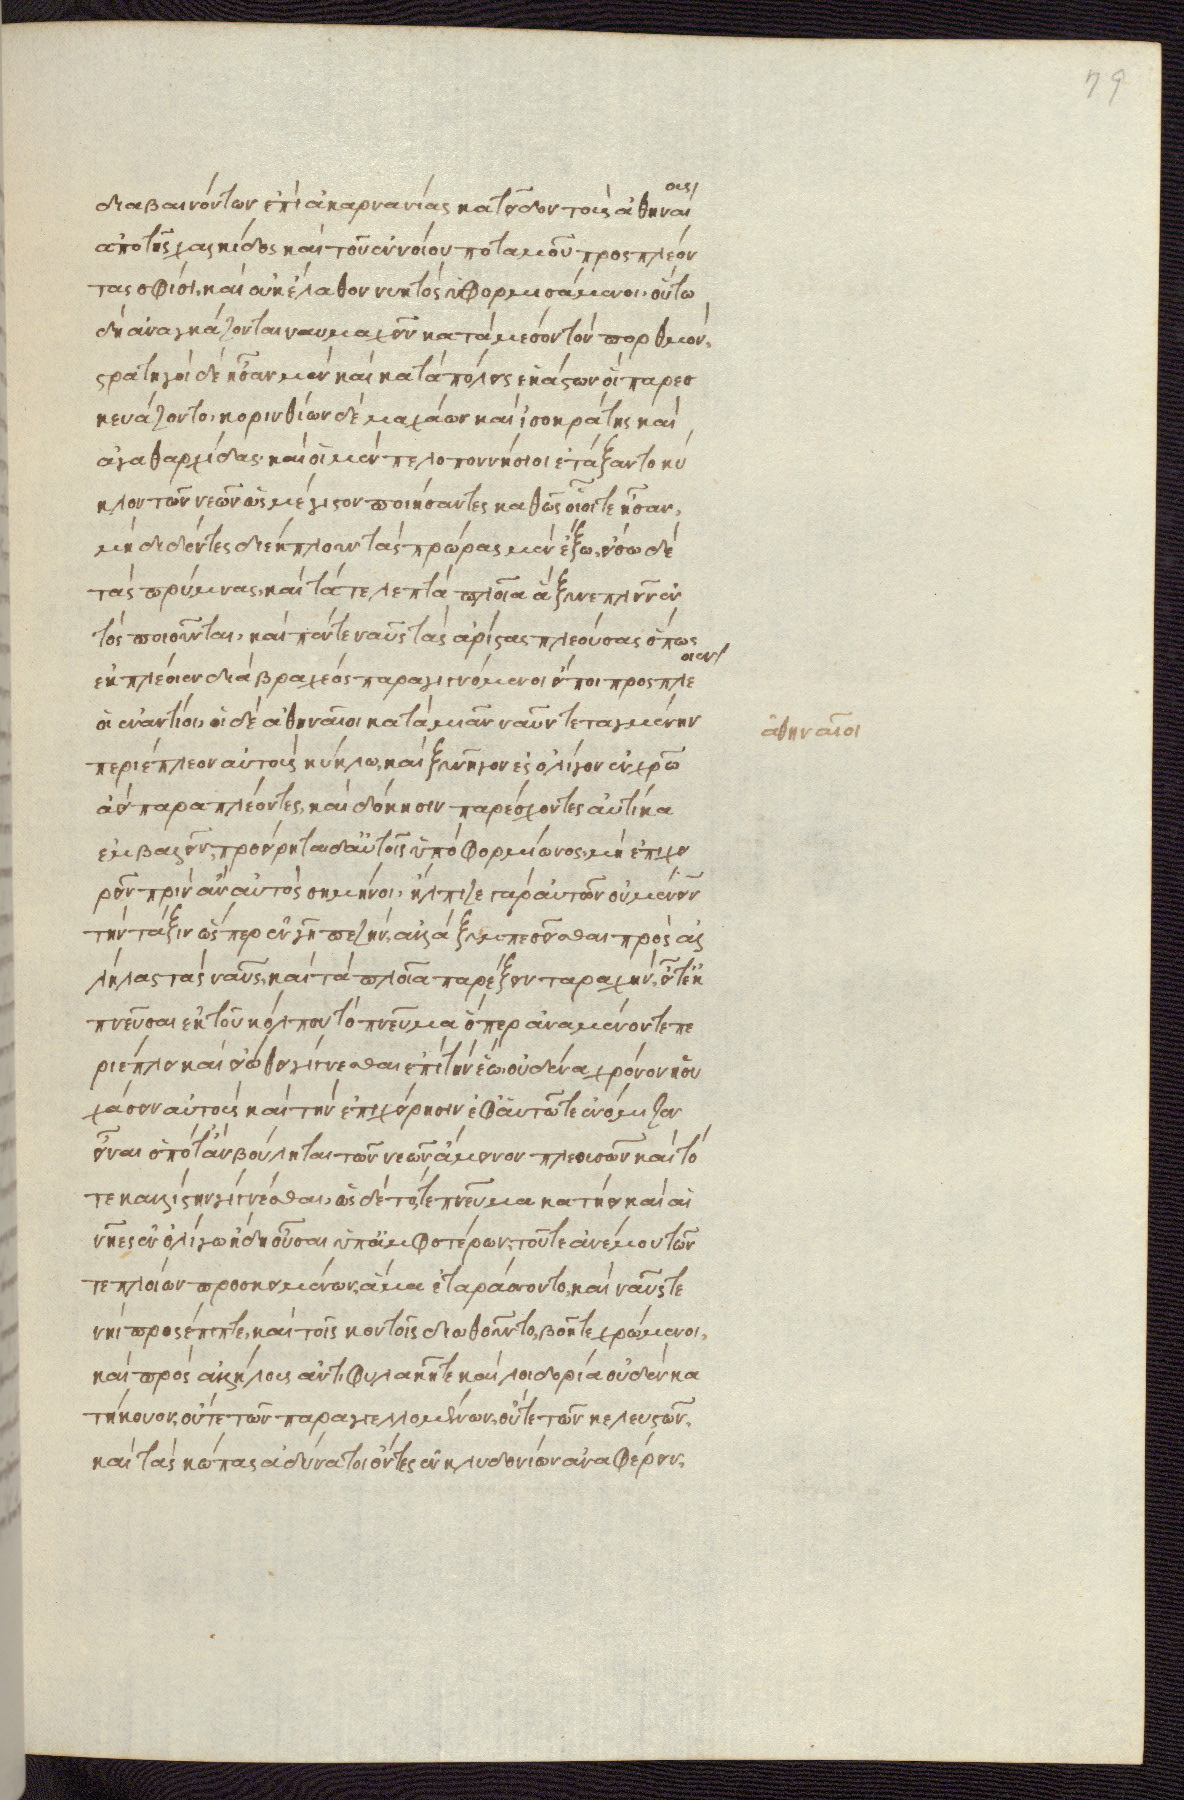 79
διαβαινόντων ἐπὶ ἀκαρνανίας κατεῖδον τοὺς ἀθηναίους
ἀπὸ τῆς χαλκίδος καὶ τοῦ εὐήνου ποταμοῦ προσπλέον
τας σφίσι, καὶ οὐκ ἔλαθον νυκτὸς ὑφορμισάμενοι, οὕτω
δὴ ἀναγκάζονται ναυμαχεῖν κατὰ μέσον τὸν πορθμόν,
στρατηγοὶ δὲ ἦσαν μὲν καὶ κατὰ πόλεις ἑκάστων οἳ παρεσ
κευάζοντο, κορινθίων δὲ μαχάων καὶ ἰσοκράτης καὶ
ἀγαθαρχίδας, καὶ οἱ μὲν πελοποννήσιοι ἐτάξαντο κύ
κλον τῶν νεῶν ὡς μέγιστον ποιήσαντες καθὼς οἷοί τε ἦσαν,
μὴ διδόντες διέκπλουν τὰς πρώρας μὲν ἔξω, εἴσω δὲ
τὰς πρύμνας, καὶ τά τε λεπτὰ πλοῖα ἃ ξυνεπλει ἐν
τὸς ποιοῦνται, καὶ πέντε ναῦς τὰς ἄριστας πλεούσας ὅπως
ἐκπλέοιεν διὰ βραχέος παραγιγνόμενοι εἴ ποι προσπλέοιεν
οἱ ἐναντίοι, οἱ δὲ ἀθηναῖοι κατὰ μίαν ναῦν τεταγμένην
ἀθηναῖοι
περιέπλεον αὐτοὺς κύκλω, καὶ ξυνῆγον ἐς ὀλίγον ἐν χρῶ
ἀεὶ παραπλέοντες, καὶ δόκησιν παρέχοντες αὐτίκα
ἐμβαλεῖν, προείρητο δ' αὐτοῖς ὑπὸ φορμίωνος, μὴ ἐπιχει
ρεῖν πρὶν ἂν αὐτὸς σημήνη, ἤλπιζε γὰρ αὐτῶν οὐ μένειν
τὴν τάξιν ὥσπερ ἐν γῆ πεζὴν, ἀλλὰ ξυμπεσεῖσθαι πρὸς ἀλ
λήλας τὰς ναῦς, καὶ τὰ πλοῖα παρέξειν ταραχήν, εἴ τ' ἐκ
πνεύσαι ἐκ τοῦ κόλπου τὸ πνεῦμα ὅπερ ἀναμένων τε πε
ριέπλει καὶ εἰώθει γίγνεσθαι ἐπὶ τὴν ἕω, οὐδένα χρόνον ἡσυ
χάσειν αὐτοὺς καὶ τὴν ἐπιχείρησιν ἐφ' ἑαυτῶ τε ἐνόμιζεν
εἶναι ὁπότ' ἂν βούληται τῶν νεῶν ἄμεινον πλεουσῶν καὶ τό
τε καλλίστην γίγνεσθαι, ὡς δὲ τό τε πνεῦμα κατήει καὶ αἱ
νῆες ἐν ὀλίγω ἤδη οὖσαι ὑπ' ἀμφοτέρων, τοῦ τε ἀνέμου τῶν
τε πλοίων προσκειμένων, ἅμα ἐταράσσοντο, καὶ ναῦς τε
νηὶ προσέπιπτε, καὶ τοῖς κοντοῖς διωθοῦντο, βοῆ τε χρώμενοι,
καὶ πρὸς ἀλλήλους ἀντιφυλακῆ τε καὶ λοιδορία οὐδὲν κα
τήκουον, οὔτε τῶν παραγγελλομένων, οὔτε τῶν κελευστῶν,
καὶ τὰς κώπας ἀδύνατοι ὄντες ἐν κλυδωνίω ἀναφέρειν,